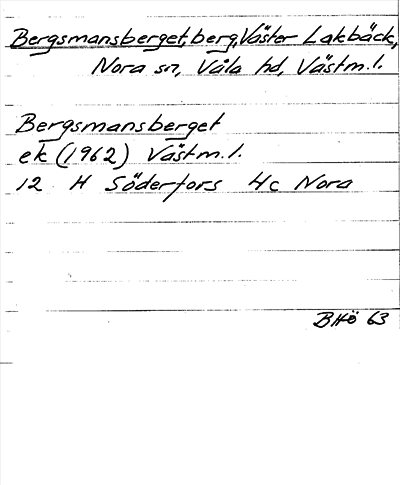 Bergsmansberget, berg, Väster Lakbäck,
Nora sn, Våla hd, Västm.l.
Bergsmansberget
ek (1962) Västm.l.
12 H Söderfors 4c Nora
BHö 63